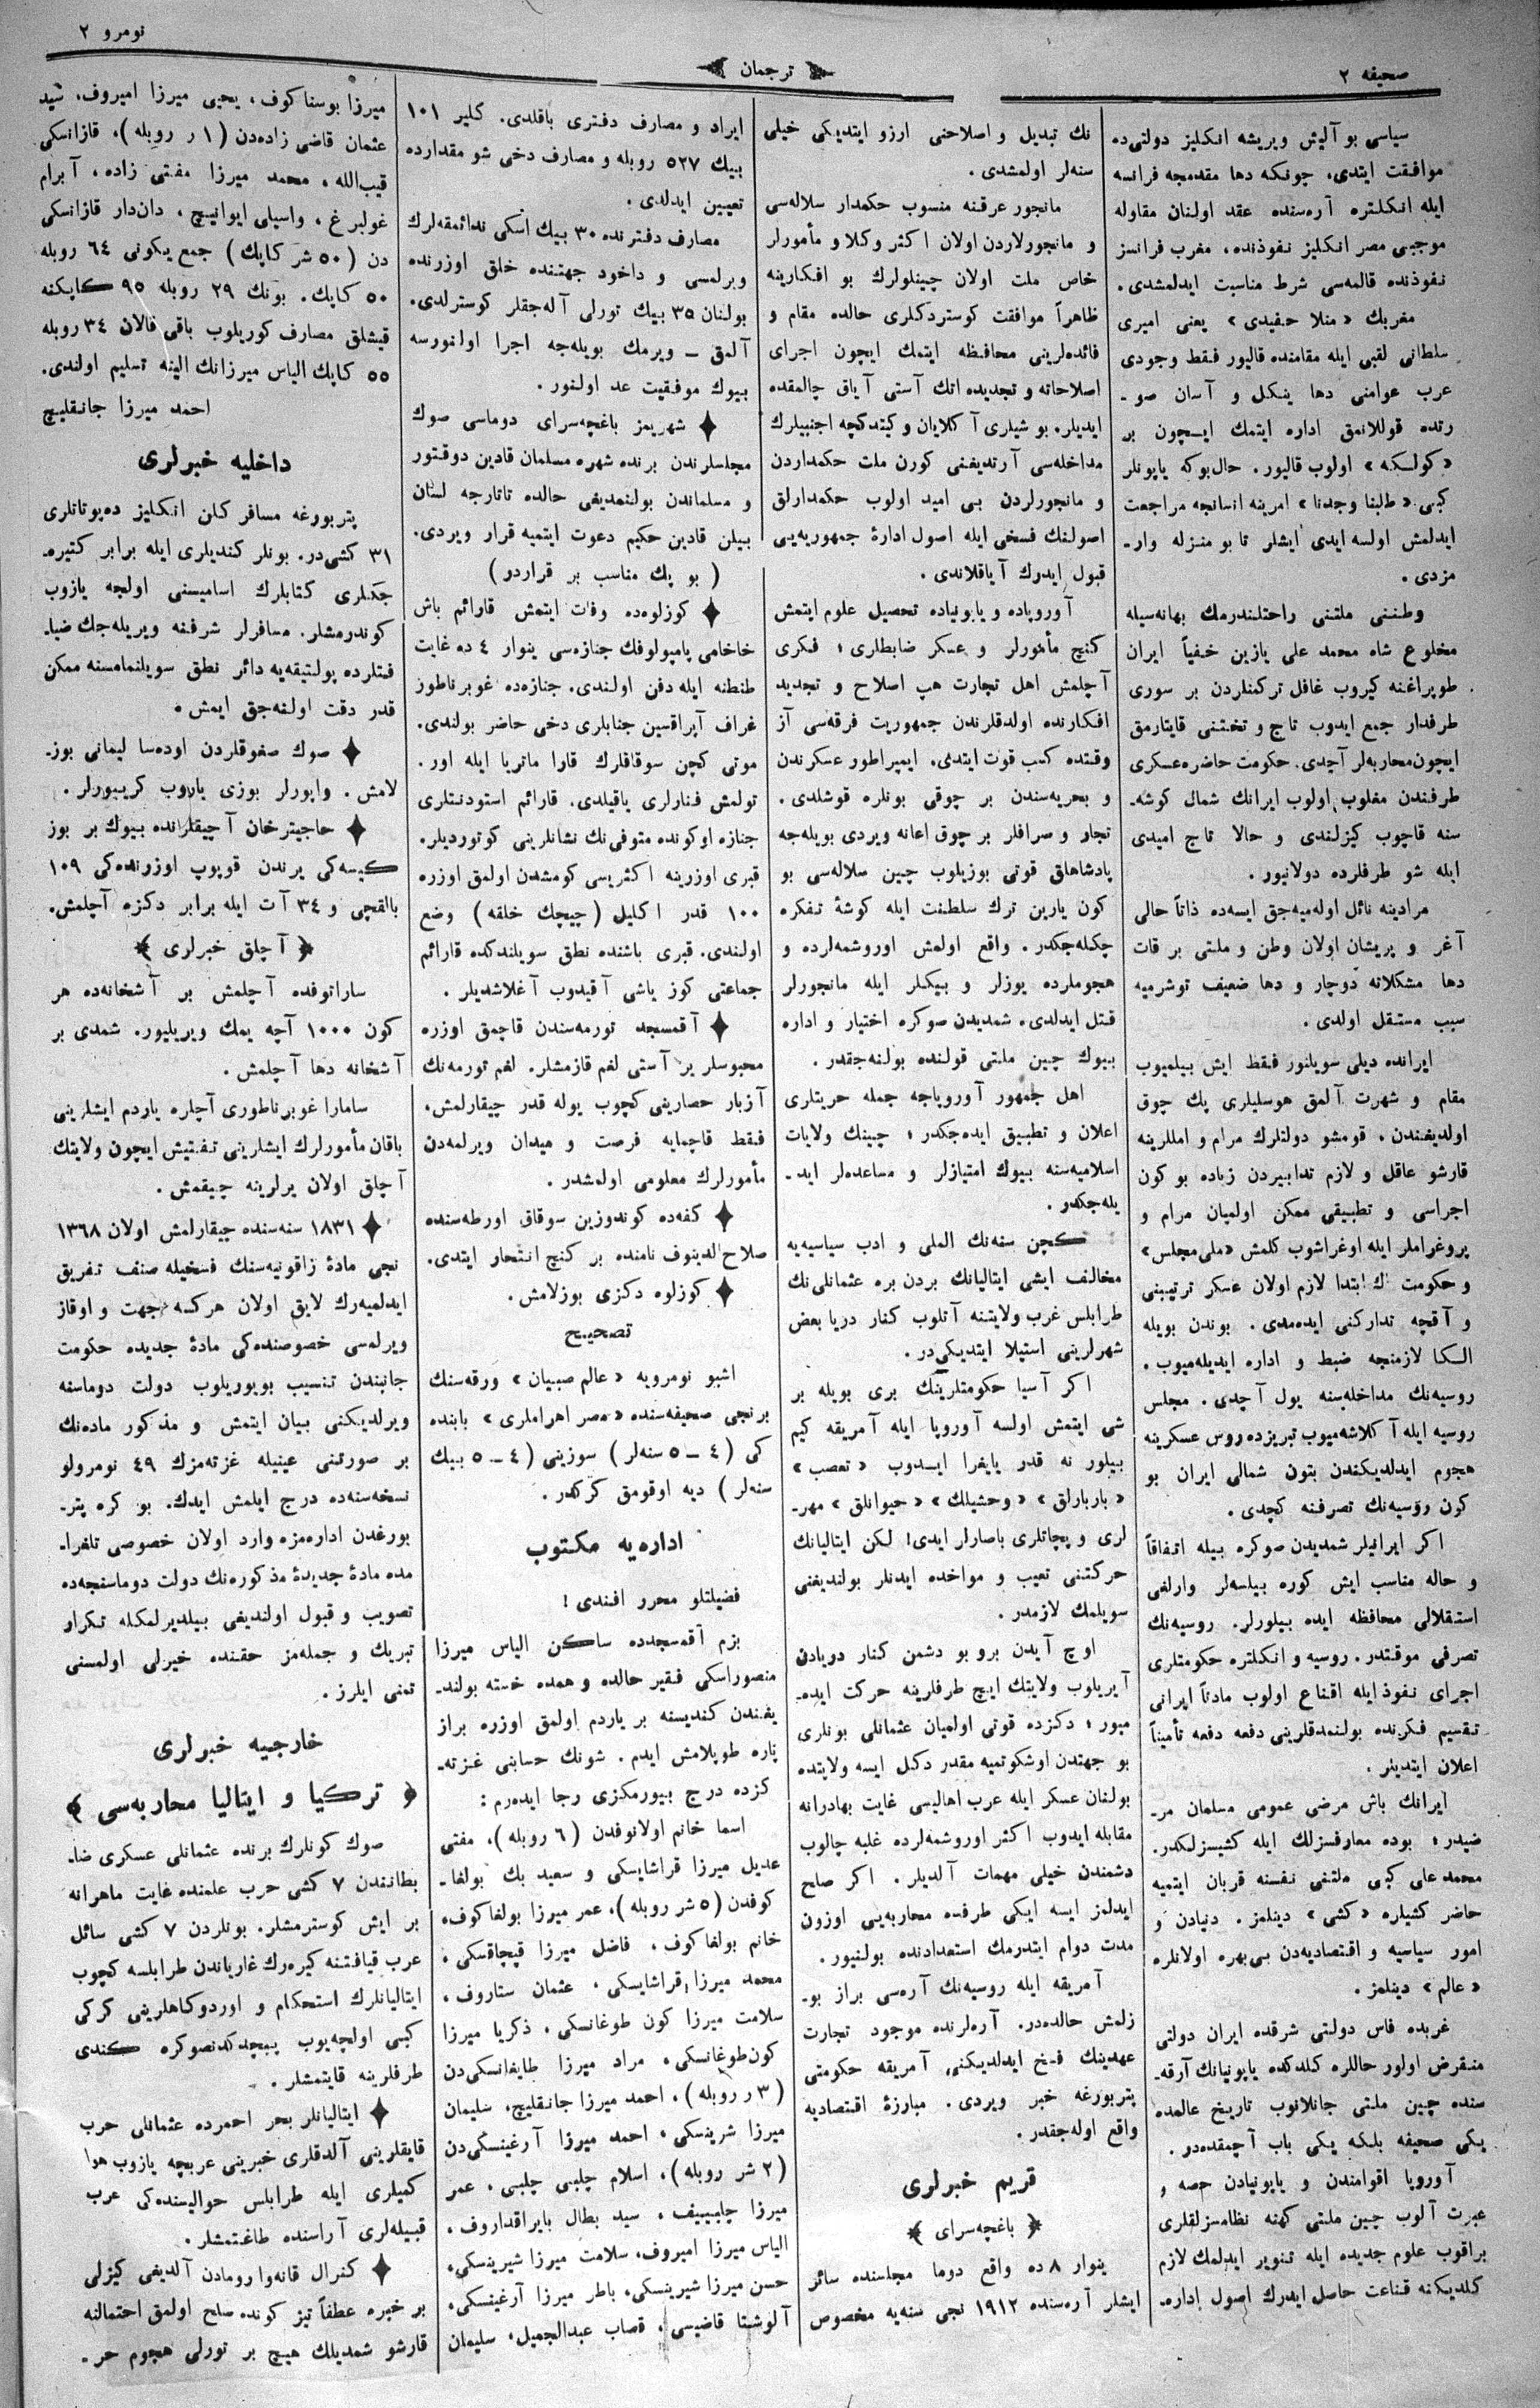 صحیفه ۲
ترجمان
نومرو ۲
سیاسی بو آلیش ویریشه انکلیز دولتی‌ده
موافقت ایتدی، چونکه دها مقدمجه فرانسه
ایله انکلتره آره‌سنده عقد اولنان مقاوله
موجبی مصر انکلیز نفوذنده، مغرب فرانسز
نفوذنده قالمه‌سی شرط مناسبت ایدلمشدی.
مغربك «منلا حفیدی» یعنی امیری
سلطانی لقبی ایله مقامنده قالیور فقط وجودی
عرب عوامنی دها ینکل و آسان صو-
رتده قوللانمق اداره ایتمك ایچون بر
«کولکه» اولوب قالیور. حال‌بوکه یاپونلر
کبی «طلبنا وجدنا» امرینه انسانجه مراجعت
ایدلمش اولسه ایدی ایشلر تا بو منزله وار-
مزدی.
وطننی ملتنی راحتلندرمك بهانه‌سیله
مخلوع شاه محمد علی یازین خفیاً ایران
طوپراغنه کیروب غافل ترکمنلردن بر سوری
طرفدار جمع ایدوب تاج و تختنی قایتارمق
ایچون محاربه‌لر آچدی. حکومت حاضره عسکری
طرفندن مغلوب اولوب ایرانك شمال کوشه-
سنه قاچوب کیزلندی و حالا تاج امیدی
ایله شو طرفلرده دولانیور.
مرادینه نائل اوله‌میه‌جق ایسه‌ده ذاتاً حالی
آغر و پریشان اولان وطن و ملتی بر قات
دها مشکلاته دوچار و دها ضعیف توشرمیه
سبب مستقل اولدی.
ایرانده دیلی سویلنور فقط ایش بیلمیوب
مقام و شهرت آلمق هوسلیلری پك چوق
اولدیغندن، قومشو دولتلرك مرام و امللرینه
قارشو عاقل و لازم تدابیردن زیاده بو کون
اجراسی و تطبیقی ممکن اولمیان مرام و
پروغراملر ایله اوغراشوب کلمش «ملی مجلس»
و حکومت اك ابتدا لازم اولان عسکر ترتیبنی
و آقچه تدارکنی ایده‌مدی. بوندن بویله
الکا لازمنجه ضبط و اداره ایدیله‌میوب.
روسیه‌نك مداخله‌سنه یول آچدی. مجلس
روسیه ایله آکلاشه‌میوب تبریزده روس عسکرینه
هجوم ایدلدیکندن بتون شمالی ایران بو
کون روسیه‌نك تصرفنه کچدی.
اکر ایرانیلر شمدیدن صوکره بیله اتفاقاً
و حاله مناسب ایش کوره بیلسه‌لر وارلغی
استقلالی محافظه ایده بیلورلر. روسیه‌نك
تصرفی موقتدر. روسیه و انکلتره حکومتلری
اجرای نفوذ ایله اقناع اولوب مادتاً ایرانی
تقسیم فکرنده بولنمدقلرینی دفعه دفعه تأمیناً
اعلان ایتدیلر.
ایرانك باش مرضی عمومی مسلمان مر-
ضیدر؛ بوده معارفسزلك ایله کشیسزلکدر.
محمد علی کبی ملتنی نفسنه قربان ایتمیه
حاضر کشیلره «کشی» دینلمز. دنیادن و
امور سیاسیه و اقتصادیه‌دن بی‌بهره اولانلره
«عالم» دینلمز.
غربده فاس دولتی شرقده ایران دولتی
منقرض اولور حاللره کلدکده یاپونیانك آرقه-
سنده چین ملتی جانلانوب تاریخ عالمده
یکی صحیفه بلکه یکی باب آچمقده‌در.
آوروپا اقوامندن و یاپونیادن حصه و
عبرت آلوب چین ملتی کهنه نظامسزلقلری
براقوب علوم جدیده ایله تنویر ایدلمك لازم
کلدیکنه قناعت حاصل ایدرك اصول اداره-
نك تبدیل و اصلاحنی ارزو ایتدیکی خیلی
سنه‌لر اولمشدی.
مانجور عرقنه منسوب حکمدار سلاله‌سی
و مانچورلاردن اولان اکثر وکلا و مأمورلر
خاص ملت اولان چینلولرك بو افکارینه
ظاهراً موافقت کوستردکلری حالده مقام و
فائده‌لرینی محافظه ایتمك ایچون اجرای
اصلاحاته و تجدیده اتك آستی آیاق چالمقده
ایدیلر. بو شیلری آکلایان و کیتدکچه اجنبیلرك
مداخله‌سی آرتدیغنی کورن ملت حکمداردن
و مانجورلردن بی امید اولوب حکمدارلق
اصولنك فسخی ایله اصول ادارۀ جمهوریه‌یی
قبول ایدرك آیاقلاندی.
آوروپاده و یابونیاده تحصیل علوم ایتمش
کنچ مأمورلر و عسکر ضابطلری؛ فکری
آچلمش اهل تجارت هپ اصلاح و تجدید
افکارنده اولدقلرندن جمهوریت فرقه‌سی آز
وقتده کسب قوت ایتدی. ایمپراطور عسکرندن
و بحریه‌سندن بر چوقی بونلره قوشلدی.
تجار و صرافلر بر چوق اعانه ویردی بویله‌جه
پادشاهلق قوتی بوزیلوب چین سلاله‌سی بو
کون یارین ترك سلطنت ایله کوشۀ تفکره
چکله‌جکدر. واقع اولمش اوروشمه‌لرده و
هجوملرده یوزلر و بیکلر ایله مانجورلر
قتل ایدلدی. شمدیدن صوکره اختیار و اداره
بیوك چین ملتی قولنده بولنه‌جقدر.
اهل جمهور آوروپاجه جمله حریتلری
اعلان و تطبیق ایده‌جکدر؛ چینك ولایات
اسلامیه‌سنه بیوك امتیازلر و مساعده‌لر اید-
یله‌جکدر.
کچن سنه‌نك المللی و ادب سیاسیه‌یه
مخالف ایشی ایتالیانك بردن بره عثمانلی‌نك
طرابلس غرب ولایتنه آتلوب کنار دریا بعض
شهرلرینی استیلا ایتدیکی‌در.
اکر آسیا حکومتلرینك بری بویله بر
شی ایتمش اولسه آوروپا ایله آمریقه کیم
بیلور نه قدر یایغرا ایدوب «تعصب»
«بارباراق» «وحشیلك» «حیوانلق» مهر-
لری و پچاتلری باصارلر ایدی! لکن ایتالیانك
حرکتنی تعیب و مواخذه ایدنلر بولندیغنی
سویلمك لازمدر.
اوچ آیدن برو بو دشمن کنار دریادن
آیریلوب ولایتك ایچ طرفلرینه حرکت ایده-
میور؛ دکزده قوتی اولمیان عثمانلی بونلری
بو جهتدن اوشکوتمیه مقدر دکل ایسه ولایتده
بولنان عسکر ایله عرب اهالیسی غایت بهادرانه
مقابله ایدوب اکثر اوروشمه‌لرده غلبه چالوب
دشمندن خیلی مهمات آلدیلر. اکر صلح
ایدلمز ایسه ایکی طرفده محاربه‌یی اوزون
مدت دوام ایتدرمك استعدادنده بولنیور.
آمریقه ایله روسیه‌نك آره‌سی براز بو-
زلمش حالده‌در. آره‌لرنده موجود تجارت
عهدینك فسخ ایدلدیکنی آمریقه حکومتی
پتربورغه خبر ویردی. مبارزۀ اقتصادیه
واقع اوله‌جقدر.
قریم خبرلری
﴿ باغچه‌سرای ﴾
ینوار ۸ ده واقع دوما مجلسنده سائر
ایشلر آره‌سنده ۱۹۱۲ نجی سنه‌یه مخصوص
ایراد و مصارف دفتری باقلدی. کلیر ۱۰۱
بیك ۵۲۷ روبله و مصارف دخی شو مقدارده
تعیین ایدلدی.
مصارف دفترنده ۳۰ بیك اسکی ندائمقه‌لرك
ویرلمسی و داخود جهتنده خلق اوزرنده
بولنان ۳۵ بیك تورلی آله‌جقلر کوسترلدی.
آلمق – ویرمك بویله‌جه اجرا اولنورسه
بیوك موفقیت عد اولنور.
✦ شهریمز باغچه‌سرای دوماسی صوك
مجلسلرندن برنده شهره مسلمان قادین دوقتور
و مسلماندن بولنمدیغی حالده تاتارجه لسان
بیلن قادین حکیم دعوت ایتمیه قرار ویردی.
(بو پك مناسب بر قراردر)
✦ کوزلوه‌ده وفات ایتمش قارائم باش
خاخامی پامپولوفك جنازه‌سی ینوار ٤ ده غایت
طنطنه ایله دفن اولندی. جنازه‌ده غوبرناطوز
غراف آپراقسین جنابلری دخی حاضر بولندی.
موتی کچن سوقاقلرك قارا ماتریا ایله اور.
تولمش فنارلری یاقیلدی. قارائم استودنتلری
جنازه اوکونده متوفی‌نك نشانلرینی کوتوردیلر.
قبری اوزرینه اکثریسی کومشدن اولمق اوزره
۱۰۰ قدر اکلیل (چیچك خلقه) وضع
اولندی. قبری باشنده نطق سویلندکده قارائم
جماعتی کوز یاشی آقیدوب آغلاشدیلر.
✦ آقمسجد تورمه‌سندن قاچمق اوزره
محبوسلر یر آستی لغم قازمشلر. لغم تورمه‌نك
آزبار حصارینی کچوب یوله قدر چیقارلمش،
فقط قاچمایه فرصت و میدان ویرلمه‌دن
مأمورلرك معلومی اولمشدر.
✦ کفه‌ده کوندوزین سوقاق اورطه‌سنده
صلاح الدینوف نامنده بر کنچ انتحار ایتدی.
✦ کوزلوه دکزی بوزلامش.
تصحیح
اشبو نومرویه «عالم صبیان» ورقه‌سنك
برنجی صحیفه‌سنده «مصر اهراملری» بابنده
کی (٤ – ٥ سنه‌لر) سوزینی (٤ – ٥ بیك
سنه‌لر) دیه اوقومق کرکدر.
اداره‌یه مکتوب
فضیلتلو محرر افندی!
بزم آقمسجدده ساکن الیاس میرزا
منصوراسکی فقیر حالده و همده خسته بولند-
یغندن کندیسنه بر یاردم اولمق اوزره براز
پاره طوپلامش ایدم. شونك حسابنی غزته-
کزده درج بیورمکزی رجا ایده‌رم:
اسما خانم اولانوفدن (٦ روبله)، مفتی
عدیل میرزا قراشایسکی و سعید بك بولغا-
کوفدن (٥ شر روبله)، عمر میرزا بولغاکوف،
خانم بولغاکوف، فاضل میرزا قپچاقسکی،
محمد میرزا قراشایسکی، عثمان ستاروف،
سلامت میرزا کون طوغانسکی، ذکریا میرزا
کون‌طوغانسکی، مراد میرزا طایغانسکی‌دن
(۳ ر روبله)، احمد میرزا جانقلیچ، سلیمان
میرزا شرینسکی، احمد میرزا آرغینسکی‌دن
(۲ شر روبله)، اسلام چلبی چلبی، عمر
میرزا چلبییف، سید بطال بایراقداروف،
الیاس میرزا امیروف، سلامت میرزا شیرینسکی،
حسن میرزا شیرینسکی، باطر میرزا آرغینسکی،
آلوشتا قاضیسی، قصاب عبدالجمیل، سلیمان
میرزا بوسناکوف، یحیی میرزا امیروف، سید
عثمان قاضی زاده‌دن (۱ ر روبله)، قازانسکی
قیب‌الله، محمد میرزا مفتی زاده، آبرام
غولبرغ، واسیلی ایوانیچ، دان‌دار قازانسکی
دن (٥۰ شر کاپك) جمع یکونی ٦٤ روبله
٥۰ کاپك. بونك ۲۹ روبله ۹٥ کاپکنه
قیشلق مصارف کوریلوب باقی قالان ۳٤ روبله
٥٥ کاپك الیاس میرزانك الینه تسلیم اولندی.
احمد میرزا جانقلیچ
داخلیه خبرلری
پتربورغه مسافر کلن انکلیز ده‌پوتاتلری
۳۱ کشی‌در. بونلر کندیلری ایله برابر کتیره-
جکلری کتابلرك اسامیسنی اولجه یازوب
کوندرمشلر. مسافرلر شرفنه ویریله‌جك ضیا-
فتلرده پولتیقه‌یه دائر نطق سویلنمامسنه ممکن
قدر دقت اولنه‌جق ایمش.
✦ صوك صغوقلردن اوده‌سا لیمانی بوز-
لامش. واپورلر بوزی یاروب کریبورلر.
✦ حاجیترخان آچیقلرانده بیوك بر بوز
کیسه‌کی یرندن قوپوپ اوزرنده‌کی ۱۰۹
بالقچی و ۳٤ آت ایله برابر دکزه آچلمش.
﴿ آچلق خبرلری ﴾
ساراتوفده آچلمش بر آشخانه‌ده هر
کون ۱۰۰۰ آچه یمك ویریلیور. شمدی بر
آشخانه دها آچلمش.
سامارا غوبرناطوری آچلره یاردم ایشلرینی
باقان مأمورلرك ایشلرینی تفتیش ایچون ولایتك
آچلق اولان یرلرینه چیقمش.
✦ ۱۸۳۱ سنه‌سنده چیقارلمش اولان ۱۳٦۸
نجی مادۀ زاقونیه‌سنك فسخیله صنف تفریق
ایدلمیه‌رك لایق اولان هرکسه جهت و اوقاز
ویرلمسی خصوصنده‌کی مادۀ جدیده حکومت
جانبندن تنسیب بویوریلوب دولت دوماسنه
ویرلدیکنی بیان ایتمش و مذکور ماده‌نك
بر صورتنی عینیله غزته‌مزك ٤۹ نومرولو
نسخه‌سنده درج ایلمش ایدك. بو کره پتر-
بورغدن اداره‌مزه وارد اولان خصوصی تلفرا-
مده مادۀ جدیدۀ مذکوره‌نك دولت دوماسنجه‌ده
تصویب و قبول اولندیغی بیلدیرلمکله تکرار
تبریك و جمله‌مز حقنده خیرلی اولمسنی
تمنی ایلرز.
خارجیه خبرلری
﴿ ترکیا و ایتالیا محاربه‌سی ﴾
صوك کونلرك برنده عثمانلی عسکری ضا-
بطاننندن ۷ کشی حرب علمنده غایت ماهرانه
بر ایش کوسترمشلر. بونلردن ۷ کشی سائل
عرب قیافتنه کیره‌رك غاریاندن طرابلسه کچوب
ایتالیانلرك استحکام و اوردوکاهلرینی کرکی
کبی اولچه‌یوب پیچدکدنصوکره کندی
طرفلرینه قایتمشلر.
✦ ایتالیانلر بحر احمرده عثمانلی حرب
قایقلرینی آلدقلری خبرینی عربچه یازوب هوا
کمیلری ایله طرابلس حوالیسنده‌کی عرب
قبیله‌لری آراسنده طاغتمشلر.
✦ کنرال قانه‌وا رومادن آلدیغی کیزلی
بر خبره عطفاً تیز کونده صلح اولمق احتمالنه
قارشو شمدیلك هیچ بر تورلی هجوم حر-